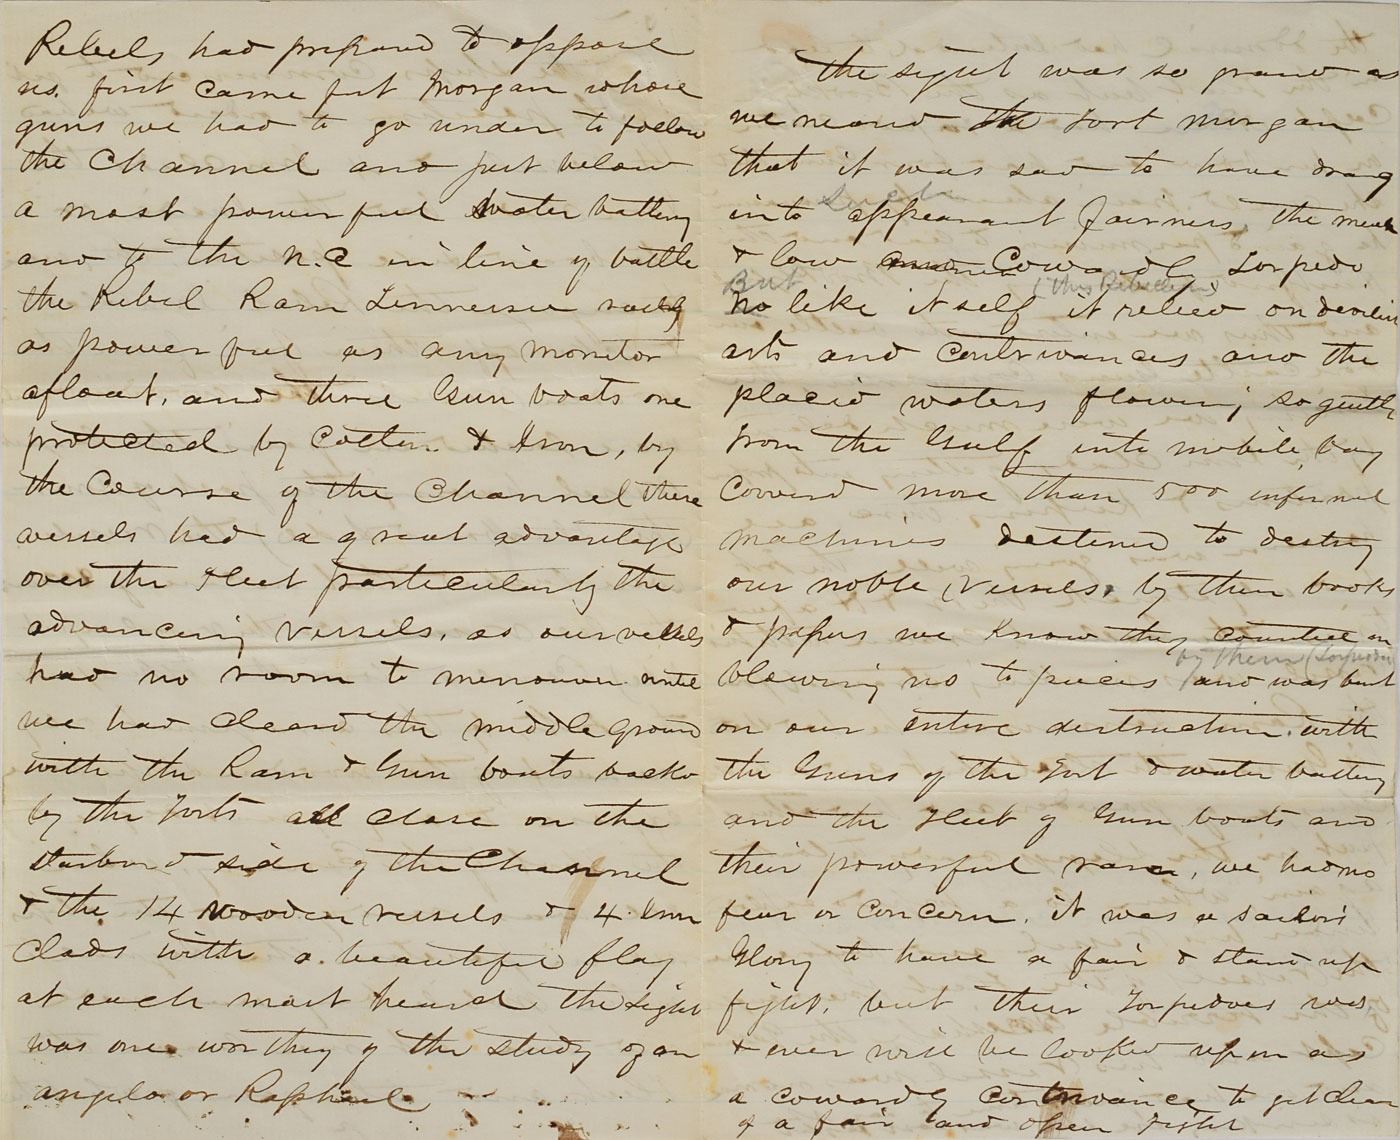 Rebels had prepared to oppose
us. first came fort Morgan whose
guns we had to go under to follow
the Channel and just below
a most powerful Water battery
and to the N.E in line of battle
the Rebel Ram Tennessee
as powerful as any monitor
afloat, and three Gun boats one
protected by Cotten & Iron, by
the Course of the Channel these
vessels had a great advantage
over the Fleet particularly the
advancing vessels, as our vessels
had no room to menouver until
we had cleard the middle ground
with the Ram & Gun boats backd
by the Forts all close on the
starbord side of the Channel
& the 14 wooden vessels & 4 Iron
Clads with a beautiful flag
at each mast heard the sight
was one worthy of the study of an
angelo or Raphael
the sight was so grand as
we neared the Fort morgan
that it was sad to have drag
into such appearant fairness, the mean
& low Cowardly Torpedo
But (this Rebellion)
No like itself it relied on devilish
arts and contrivances and the
placid waters flowing so gently
from the Gulf into mobile bay
Coverd more than 500 infernal
machines destened to destroy
our noble vessels, by their books
& papers we know they counted on
by them (Torpedoes
blowing us to pieces and was bent
on our entire destruction. with
the Guns of the Fort & water battery
and the Fleet of Gun boats and
their powerful ram, we had no
fear or concern, it was a sailors
Glory to have a fair & stand up
fight, but their Torpedoes was
& ever will be looked upon as
a cowardly contrivance to get clear
of a fair and open Fight